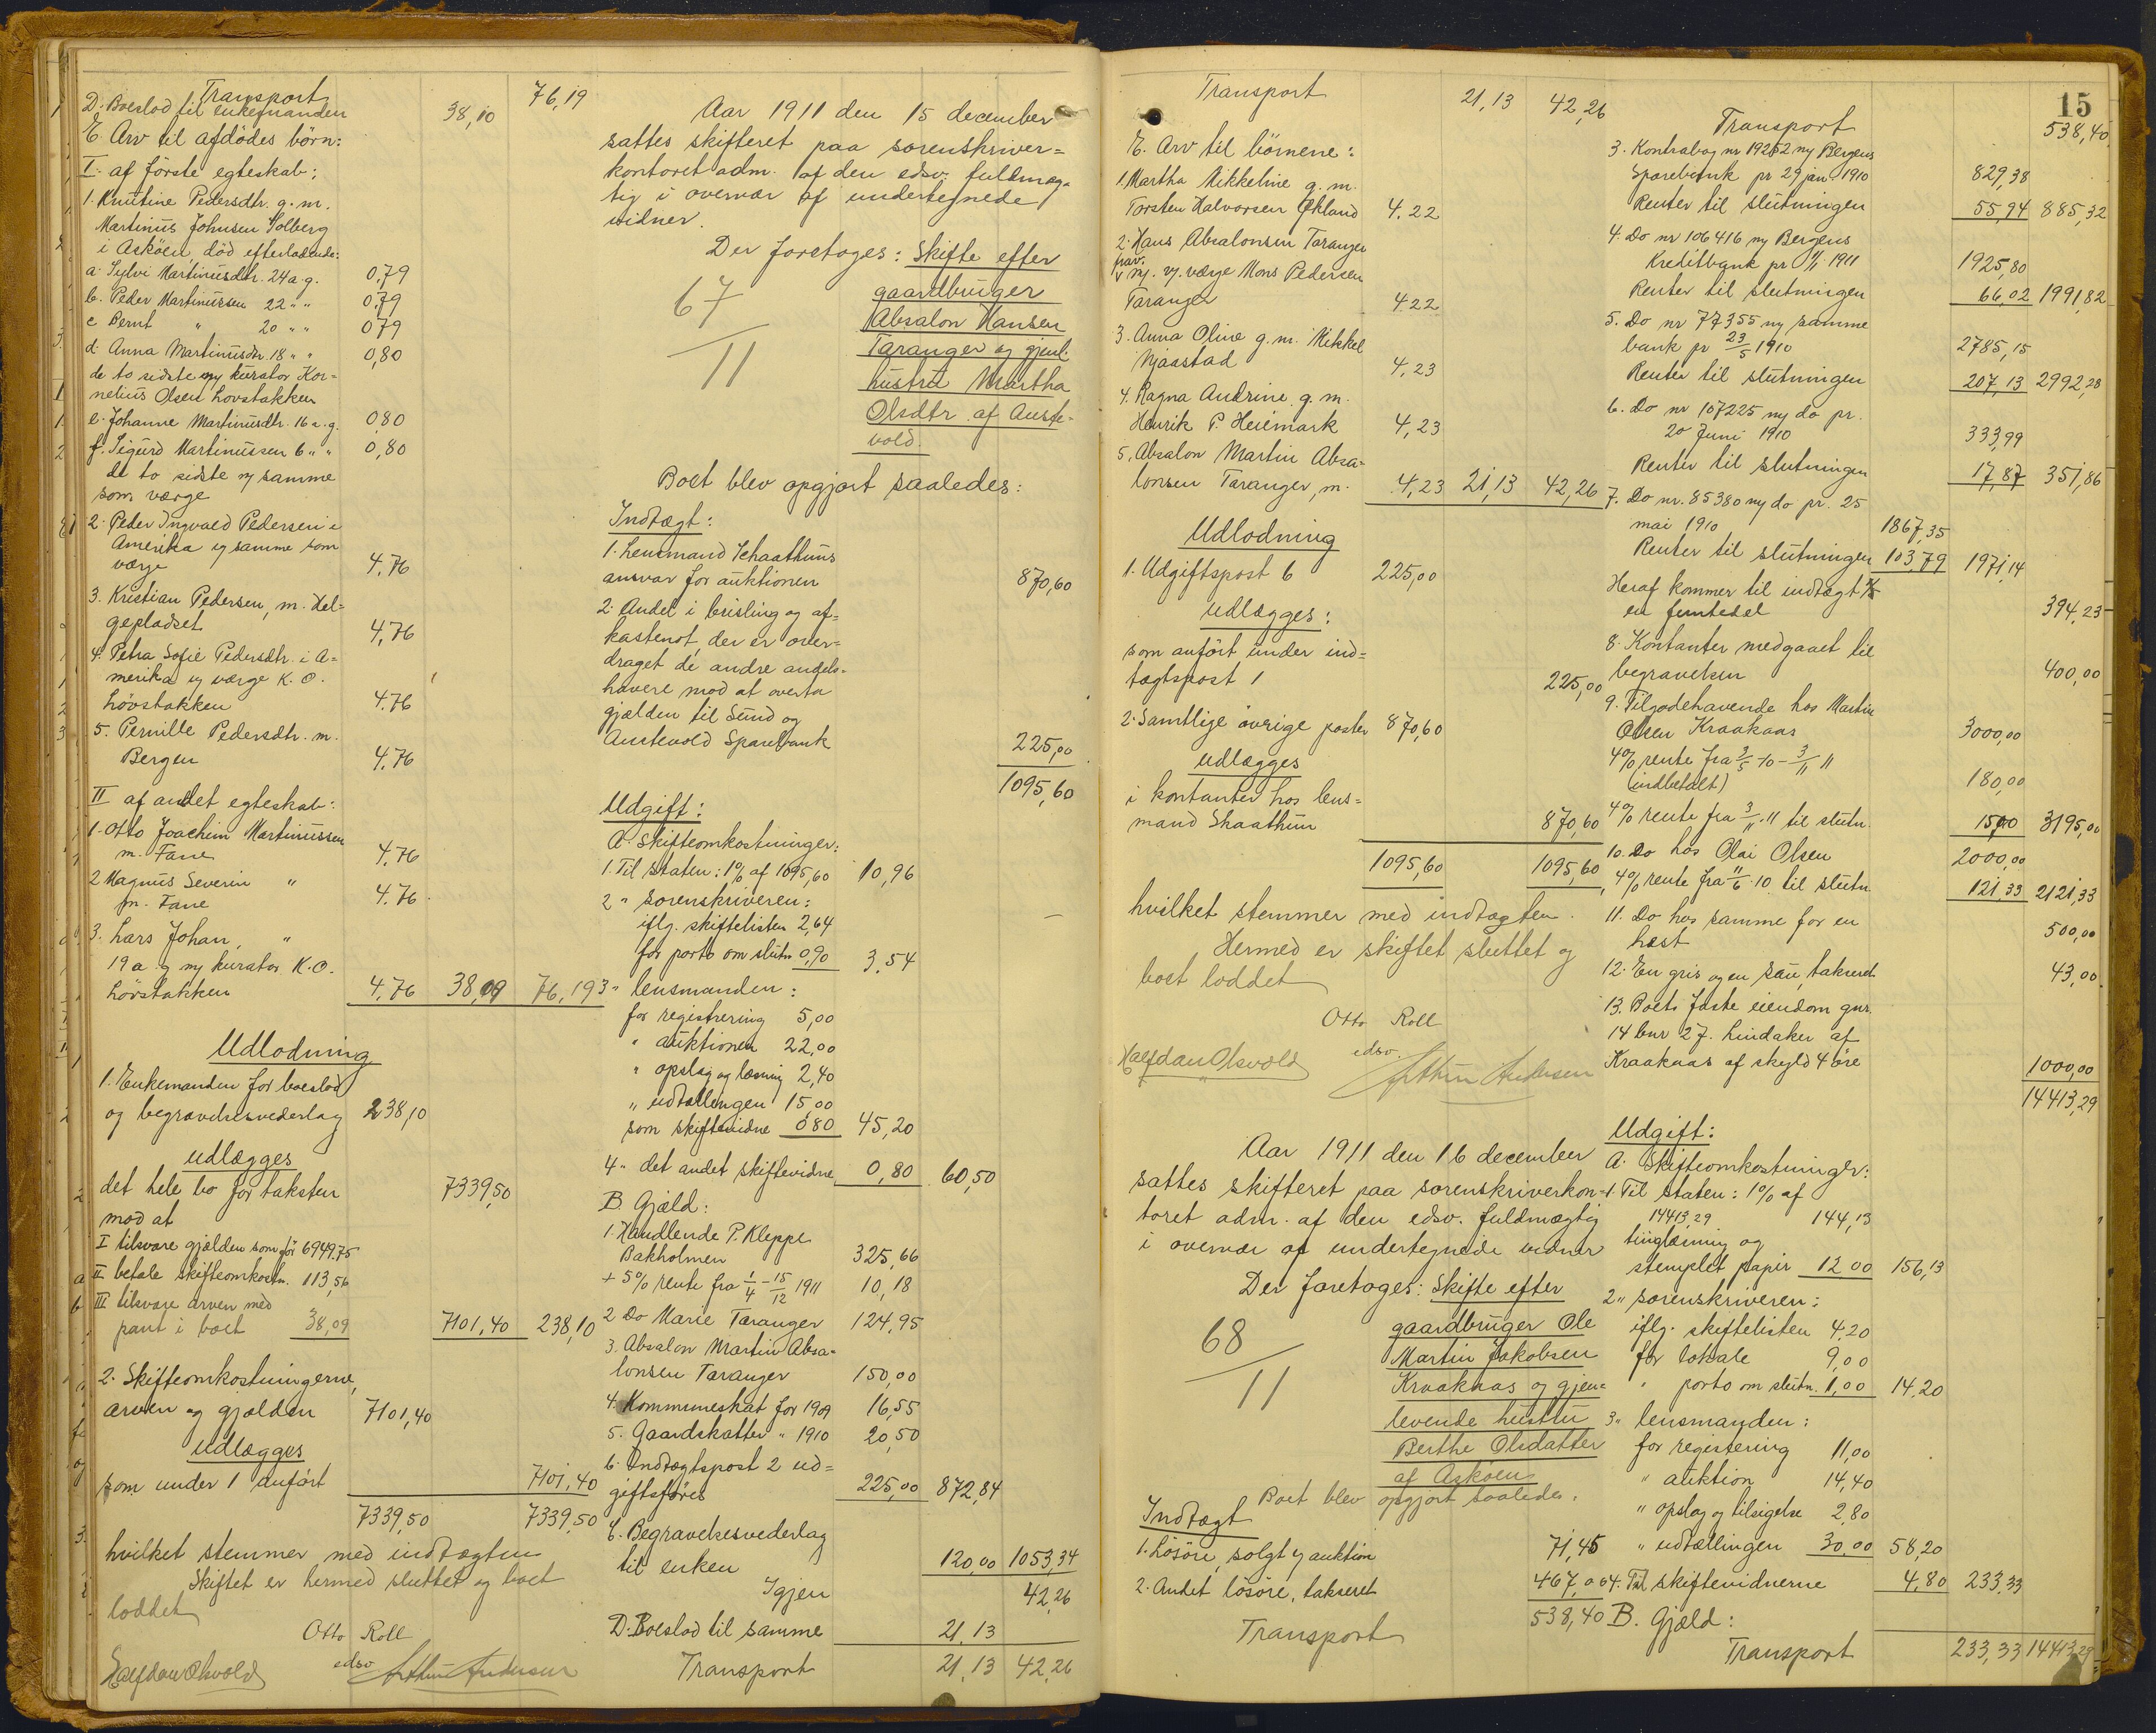 Transport 76,19
D. Boeslod til enkemanden 38,10
E. Arv til afdödes börn:
I. af förste egteskab:
1. Knutine Pedersdtr. g.m.
Martinus Johnsen Solberg
i Asköen, död efterladende:
a. Sylvi Martinusdtr. 24 a. g. 0,79
b. Peder Martinussen 22 " " 0,79
c Bernt " 20 " " 079
d. Anna Martinusdtr. 18 " " 0,80
de to sidste ny kurator Kor=
nelius Olsen Lovstakken
e. Johanne Martinusdtr. 16 a. g. 0,80
f. Sigurd Martinussen 6 " " 0,80
de to sidste ny samme
som verge
2. Peder Ingvald Pedersen i
Amerika ny samme som
verge 4,76
3. Kristian Pedersen, m. Hel=
gepladset 4,76
4. Petra Sofie Pedersdtr. i A=
merika ny verge K. O.
Lövstakken 4.76
5. Pernille Pedersdtr. m.
Bergen 4.76
II af andet egteskab:
1. Otto Joachim Martinussen
m. Fane 4,76
2 Magnus Severin "
m. Fane 4.76
3. Lars Johan, "
19 a. g ny kurator K. O.
Lövstakken 4,76 38,09 76,19
Udlodning
1. Enkemanden for boeslod
og begravelsesvederlag 238,10
udlægges
det hele bo for taksten 7339,50
mod at
I tilsvare gjælden som för 6949.75
II betale skifteomkostn. 113,56
III tilsvare arven med
pant i boet 38,09 7101,40 238,10
2. Skifteomkostningerne,
arven og gjælden 7101,40
udlægges
som under 1 anfört 7101,40
7339,50 7339,50
hvilket stemmer med indtægten
Skiftet er hermed sluttet og boet
loddet
Otto Roll
edsv.
Halfdan Olsvold Arthur Andersen
Aar 1911 den 15 december
sattes skifteret paa sorenskriver=
kontoret adm. af den edsv. fuldmæg=
tig i overvær af undertegnede
vidner.
Der foretoges: Skifte efter
67/11
gaardbruger
Absalon Hansen
Taranger og gjenl.
hustru Martha
Olsdtr. af Auste=
vold.
Boet blev opgjort saaledes:
Indtægt:
1. Lensmand Schaathuns
ansvar for auktionen 870,60
2. Andel i brisling og af=
kastenot, der er over=
draget de andre andels=
havere mod at overta
gjælden til Sund og
Austevold Sparebank 225,00
1095,60
Udgift:
A. Skifteomkostninger:
1. Til staten: 1% af 1095,60 10,96
2 " sorenskriveren:
iflg. skiftelisten 2,64
for porto om slutn 0,90 3,54
3 " lensmanden:
for registrering 5,00
" auktionen 22,00
" opslag og læsning 2,40
" udtællingen 15,00
som skiftevidne 080 45,20
4 " det andet skiftevidne 0,80 60,50
B. Gjæld:
1. Handlende P. Kleppe
Bakholmen 325,66
+ 5% rente fra 1/4 - 15/12 1911 10,18
2 Do Marie Taranger 124,95
3. Absalon Martin Absa=
lonsen Taranger 150,00
4. Kommuneskat for 1909 16,55
5. Gaardskatter " 1910 20,50
6. Indtægtspost 2 ud=
giftsföres 225,00 872,84
C. Begravelsesvederlag
til enken 120,00 1053,34
Igjen 42,26
D. Boeslod til samme 21,13
Transport 21,13 42,26
Transport 21,13 42,26
E. Arv til börnene:
1. Martha Mikkeline g.m.
Torsten Halvorsen Økland 4,22
2. Hans Absalonsen Taranger
frav.
v ny. ny. verge Mons Pedersen
Taranger 4.22
3. Anna Oline g.m. Mikkel
Njaastad 4,23
4. Ragna Andrine g.m.
Henrik P. Heiemark 4,23
5. Absalon Martin Absa=
lonsen Taranger, m. 4,23 21,13 42,26
Udlodning
1. Udgiftspost 6 225,00
udlægges:
som anfört under ind=
tægtspost 1 225,00
2. Samtlige övrige poster 870,60
udlægges
i kontanter hos lens=
mand Skaathun 870,60
1095,60 1095,60
hvilket stemmer med indtægten.
Hermed er skiftet sluttet og
boet loddet
Otto Roll
edsv.
Halfdan Olsvold Arthur Andersen
Aar 1911 den 16 december
sattes skifteret paa sorenskriverkon=
toret adm. af den edsv. fuldmægtig
i overvær af undertegnede vidner
Der foretoges: Skifte efter
68/11
gaardbruger Ole
Martin Jakobsen
Kraaknas og gjen=
levende hustru
Berthe Olsdatter
af Asköen
Boet blev opgjort saaledes:
Indtægt
1. Lösöre, solgt ny auktion 71,45
2. Andet lösöre, takseret 467,00
538,40
Transport
15
Transport 538,40
3. Kontrabog nr 19252 ny Bergens
Sparebank pr 29 jan. 1910 829,38
Renter til slutningen 55,94 885,32
4. Do nr 106416 ny Bergens
Kreditbank pr 1/1 1911 1925,80
Renter til slutningen 66,02 1991,82
5. Do nr 77355 ny samme
bank pr 23/5 1910 2785,15
Renter til slutningen 207,13 2992,28
6. Do nr 107225 ny do pr.
20 Juni 1910 333,99
Renter til slutningen 17,87 351,86
7. Do nr. 85380 ny do pr. 25
mai 1910 1867,35
Renter til slutningen 103,79 1971,14
Heraf kommer til indtægt 1/5
en femtedel 394,23
8. Kontanter medgaaet til
begravelsen 400,00
9. Tilgodehavende hos Martin
Olsen Kraaknas 3000,00
4% rente fra 3/5 10 - 3/11 11
(indbetalt) 180,00
4% rente fra 3/11 11 til slutn. 15,00 3195,00
10. Do hos Olai Olsen 2000,00
4% rente fra 11/6 10 til slutn. 121,33 2121,33
11. Do hos samme for en
hest 500,00
12. En gris og en sau, takseret 43,00
13. Boets faste eiendom gnr.
14 bnr 27. Lindaker af
Kraaknas af skyld 4 öre 1000,00
14413,29
Udgift:
A. Skifteomkostninger:
1. Til staten: 1% af
14413,29 144,13
tinglæsning og
stemplet papir 12 00 156,13
2 " sorenskriveren:
iflg. skiftelisten 4,20
for lokale 9,00
" porto om slutn. 1,00 14,20
3 " lensmanden:
for registering 11,00
" auktion 14,40
" opslag og tilsigelse 2,80
" udtællingen 30,00 58,20
4. Til skiftevidnerne 4,80 233,33
B. Gjæld:
Transport 233,33 14413,29